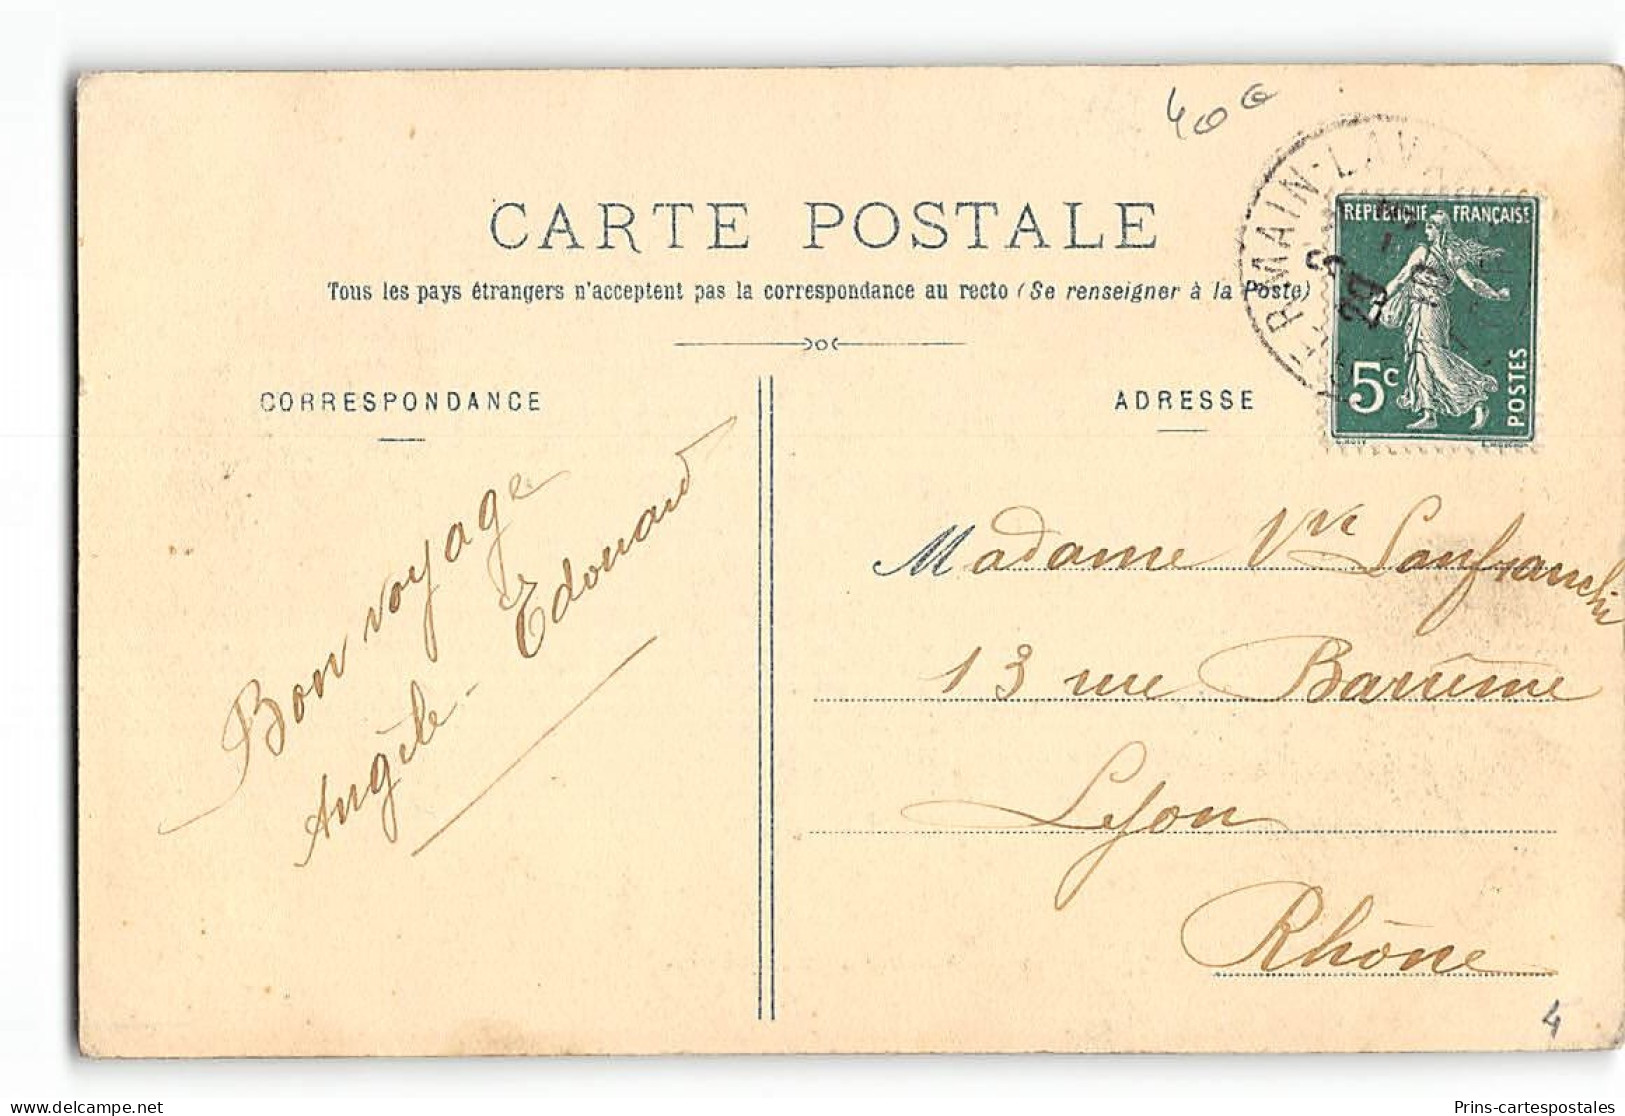 400
CARTE POSTALE
Tous les pays étrangers n'acceptent pas la correspondance au recto (Se renseigner à la Poste)
CORRESPONDANCE
Bon voyage
Angèle - Edouard
ADRESSE
RMAIN-LAVA
29
REPUBLIQUE FRANÇAISE
5c
POSTES
Madame Vve Lanfranchi
13 rue Barrême
Lyon
Rhône
4
Prins-cartespostales
delcampe.net